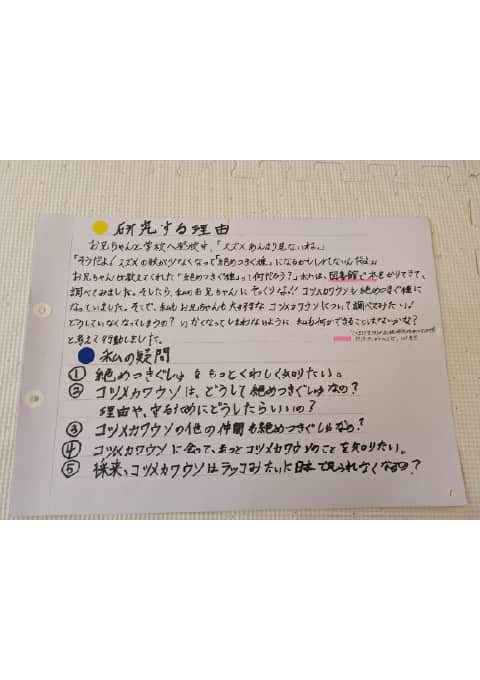 研究する理由
お兄ちゃんと学校へ登校中、「スズメあんまり見ないね。」
「そうだよ!スズメの数が少なくなって「絶めつきぐ種」になるかもしれないんだよ」
お兄ちゃんは教えてくれた「絶めつきぐ種って何だろう?」私は、図書館で本をかりてきて、
調べてみました。そしたら、私のお兄ちゃんにそっくりな!!コツメカワウソも絶めつきぐ種に
なっていました。そこで、私もお兄ちゃんも大好きなコツメカワウソについて調べてみたい!
どうしていなくなってしまうの?いなくなってしまわないように私も何ができることはないかな?
と考えて行動しました。
私の疑問
① 絶めつきぐしゅをもっとくわしく知りたい。
② コツメカワウソは、どうして絶めつきぐしゅなの?
理由や、守るためにどうしたらいいの?
③ コツメカワウソの他の仲間も絶めつきぐしゅなの?
④ コツメカワウソに会って、もっとコツメカワウソのことを知りたい。
⑤ 将来、コツメカワウソはラッコみたいに日本で見られなくなるの?
1